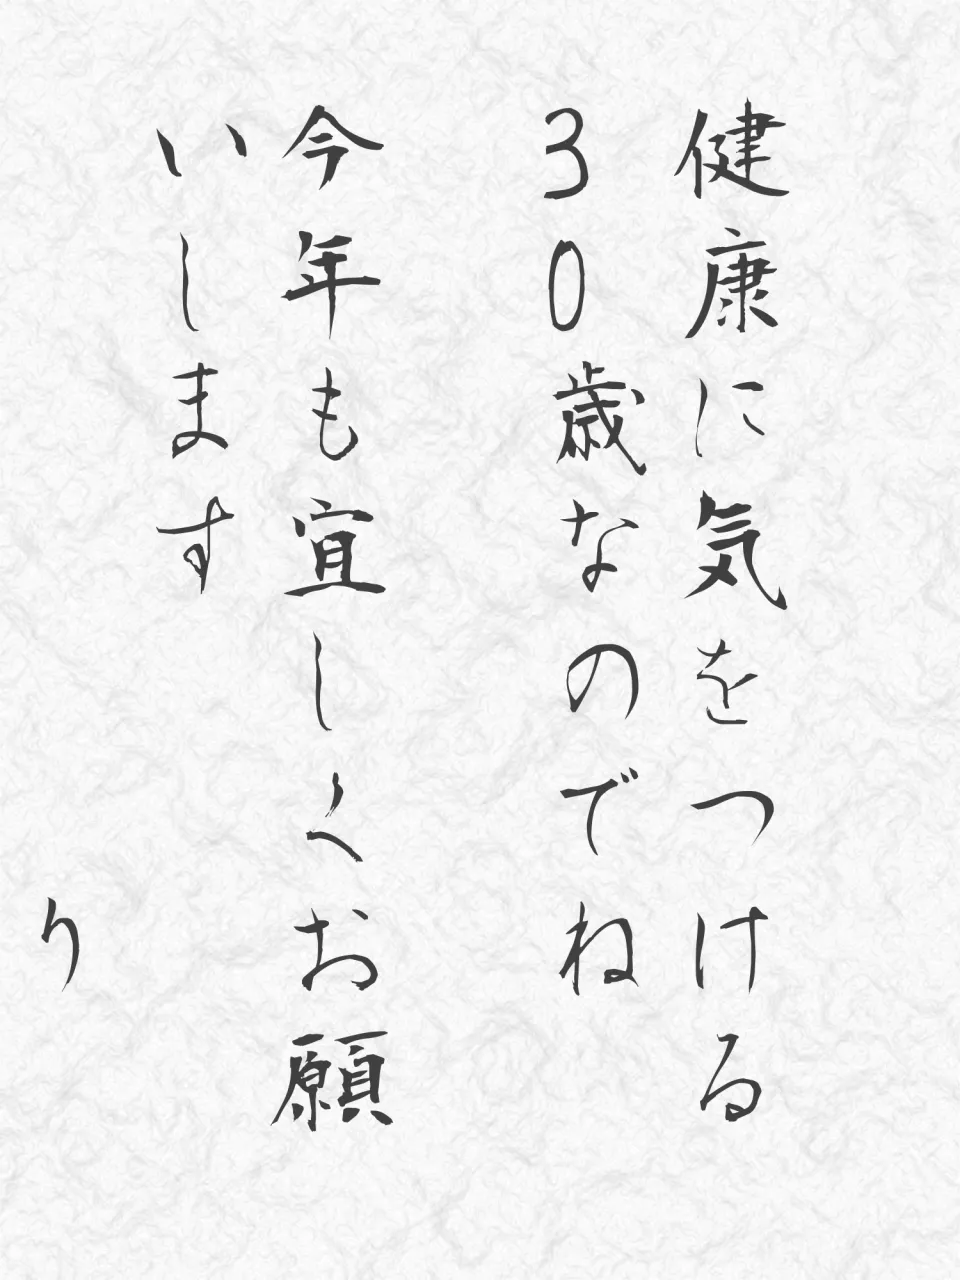 健康に気をつける
30歳なのでね
今年も宜しくお願
いします
り